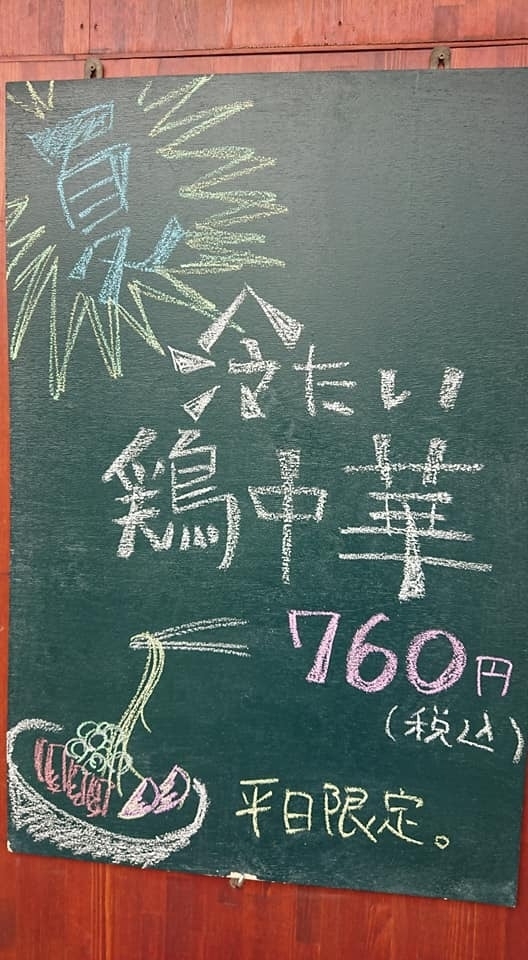 夏
冷たい
鶏中華
760円
(税込)
平日限定。